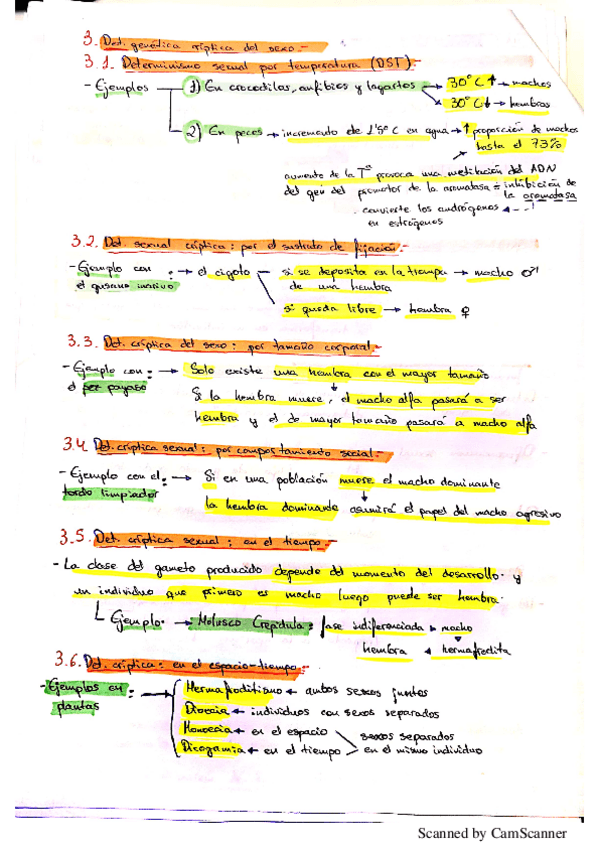 3. Det. genética críptica del sexo.-
3.1. Determinismo sexual por temperatura (DST).-
- Ejemplos
1) En crocodilos, anfibios y lagartos → 30°C ↑ → machos
30°C ↓ → hembras
2) En peces → incremento de 1'5°C en agua → ↑ proporción de machos
hasta el 73%
aumento de la Tª provoca una metilación del ADN
del gen del promotor de la aromatasa = inhibición de
la aromatasa
convierte los andrógenos
en estrógenos
3.2. Det. sexual críptica: por el sustrato de fijación.-
- Ejemplo con : → el cigoto
el gusano marino
si se deposita en la trompa → macho ♂
de una hembra
si queda libre → hembra ♀
3.3. Det. críptica del sexo: por tamaño corporal.-
- Ejemplo con : → Solo existe una hembra con el mayor tamaño
el pez payaso
Si la hembra muere, el macho alfa pasará a ser
hembra y el de mayor tamaño pasará a macho alfa
3.4 Det. críptica sexual: por comportamiento social.-
- Ejemplo con el : → Si en una población muere el macho dominante
tordo limpiador
la hembra dominante asumirá el papel del macho agresivo
3.5. Det. críptica sexual: en el tiempo.-
- La clase del gameto producido depende del momento del desarrollo y
un individuo que primero es macho luego puede ser hembra.
Ejemplo: → Molusco Crepidula: fase indiferenciada → macho
hembra ← hermafrodita
3.6. Det. críptica: en el espacio-tiempo.-
- Ejemplos en :
plantas
Hermafroditismo ← ambos sexos juntos
Dioecia ← individuos con sexos separados
Monoecia ← en el espacio
Dicogamia ← en el tiempo
sexos separados
en el mismo individuo
Scanned by CamScanner